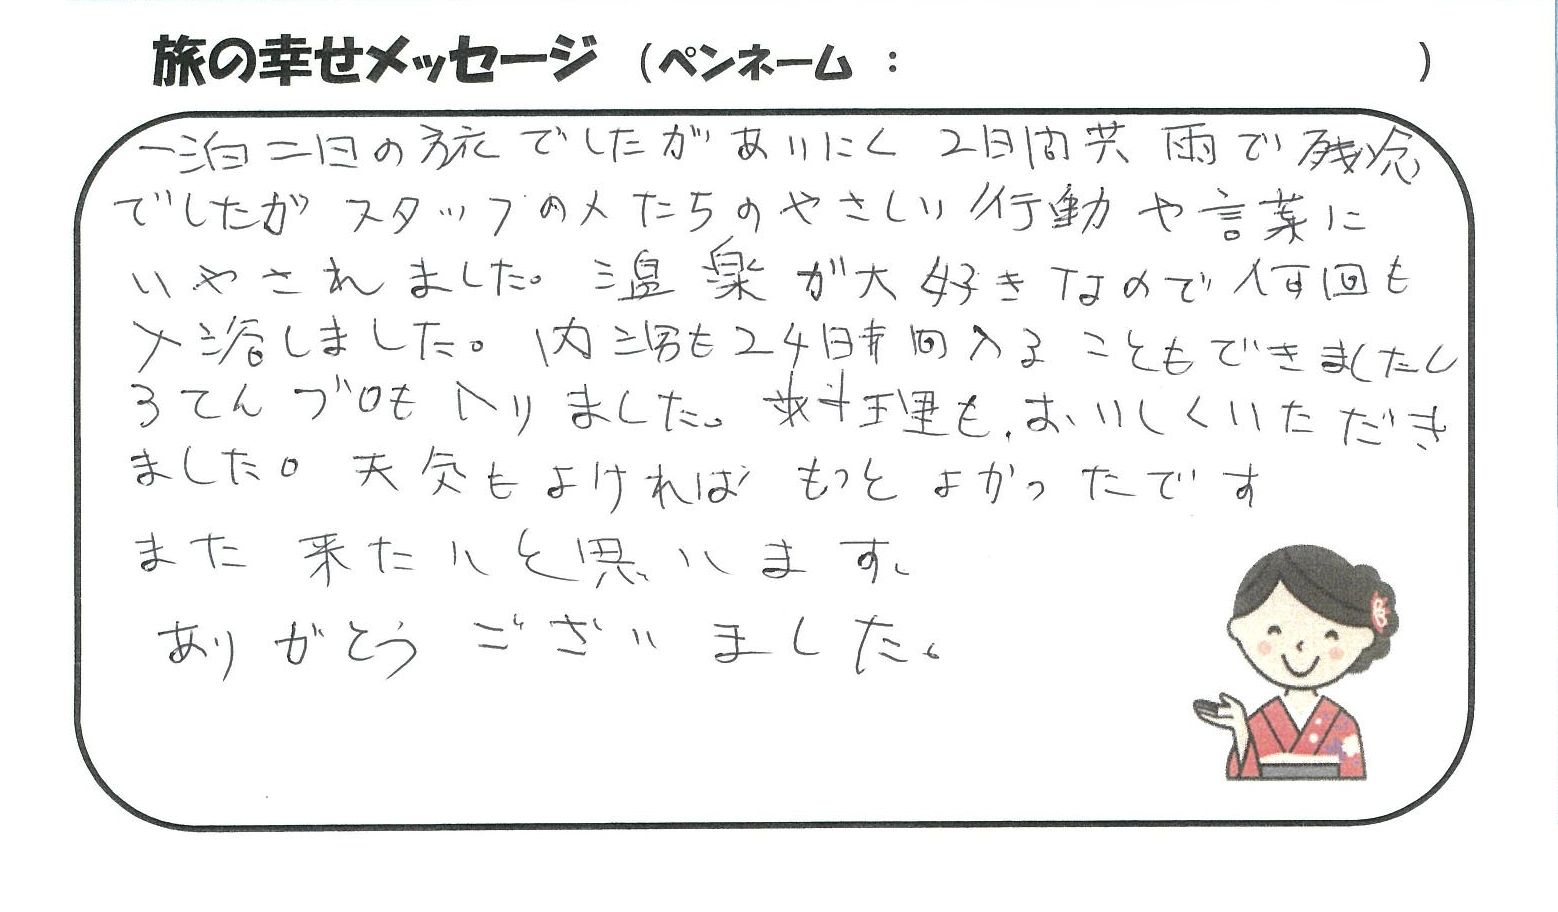 旅の幸せメッセージ （ペンネーム ： ）
一泊二日の旅でしたがあいにく 2日間共 雨で残念
でしたが スタッフの人たちのやさしい行動や言葉に
いやされました。温泉が大好きなので何回も
入浴しました。内湯も24時間入ることもできましたし
ろてんブロも入りました。料理も、おいしくいただき
ました。天気もよければ もっとよかったです
また 来たいと思います。
ありがとう ございました。